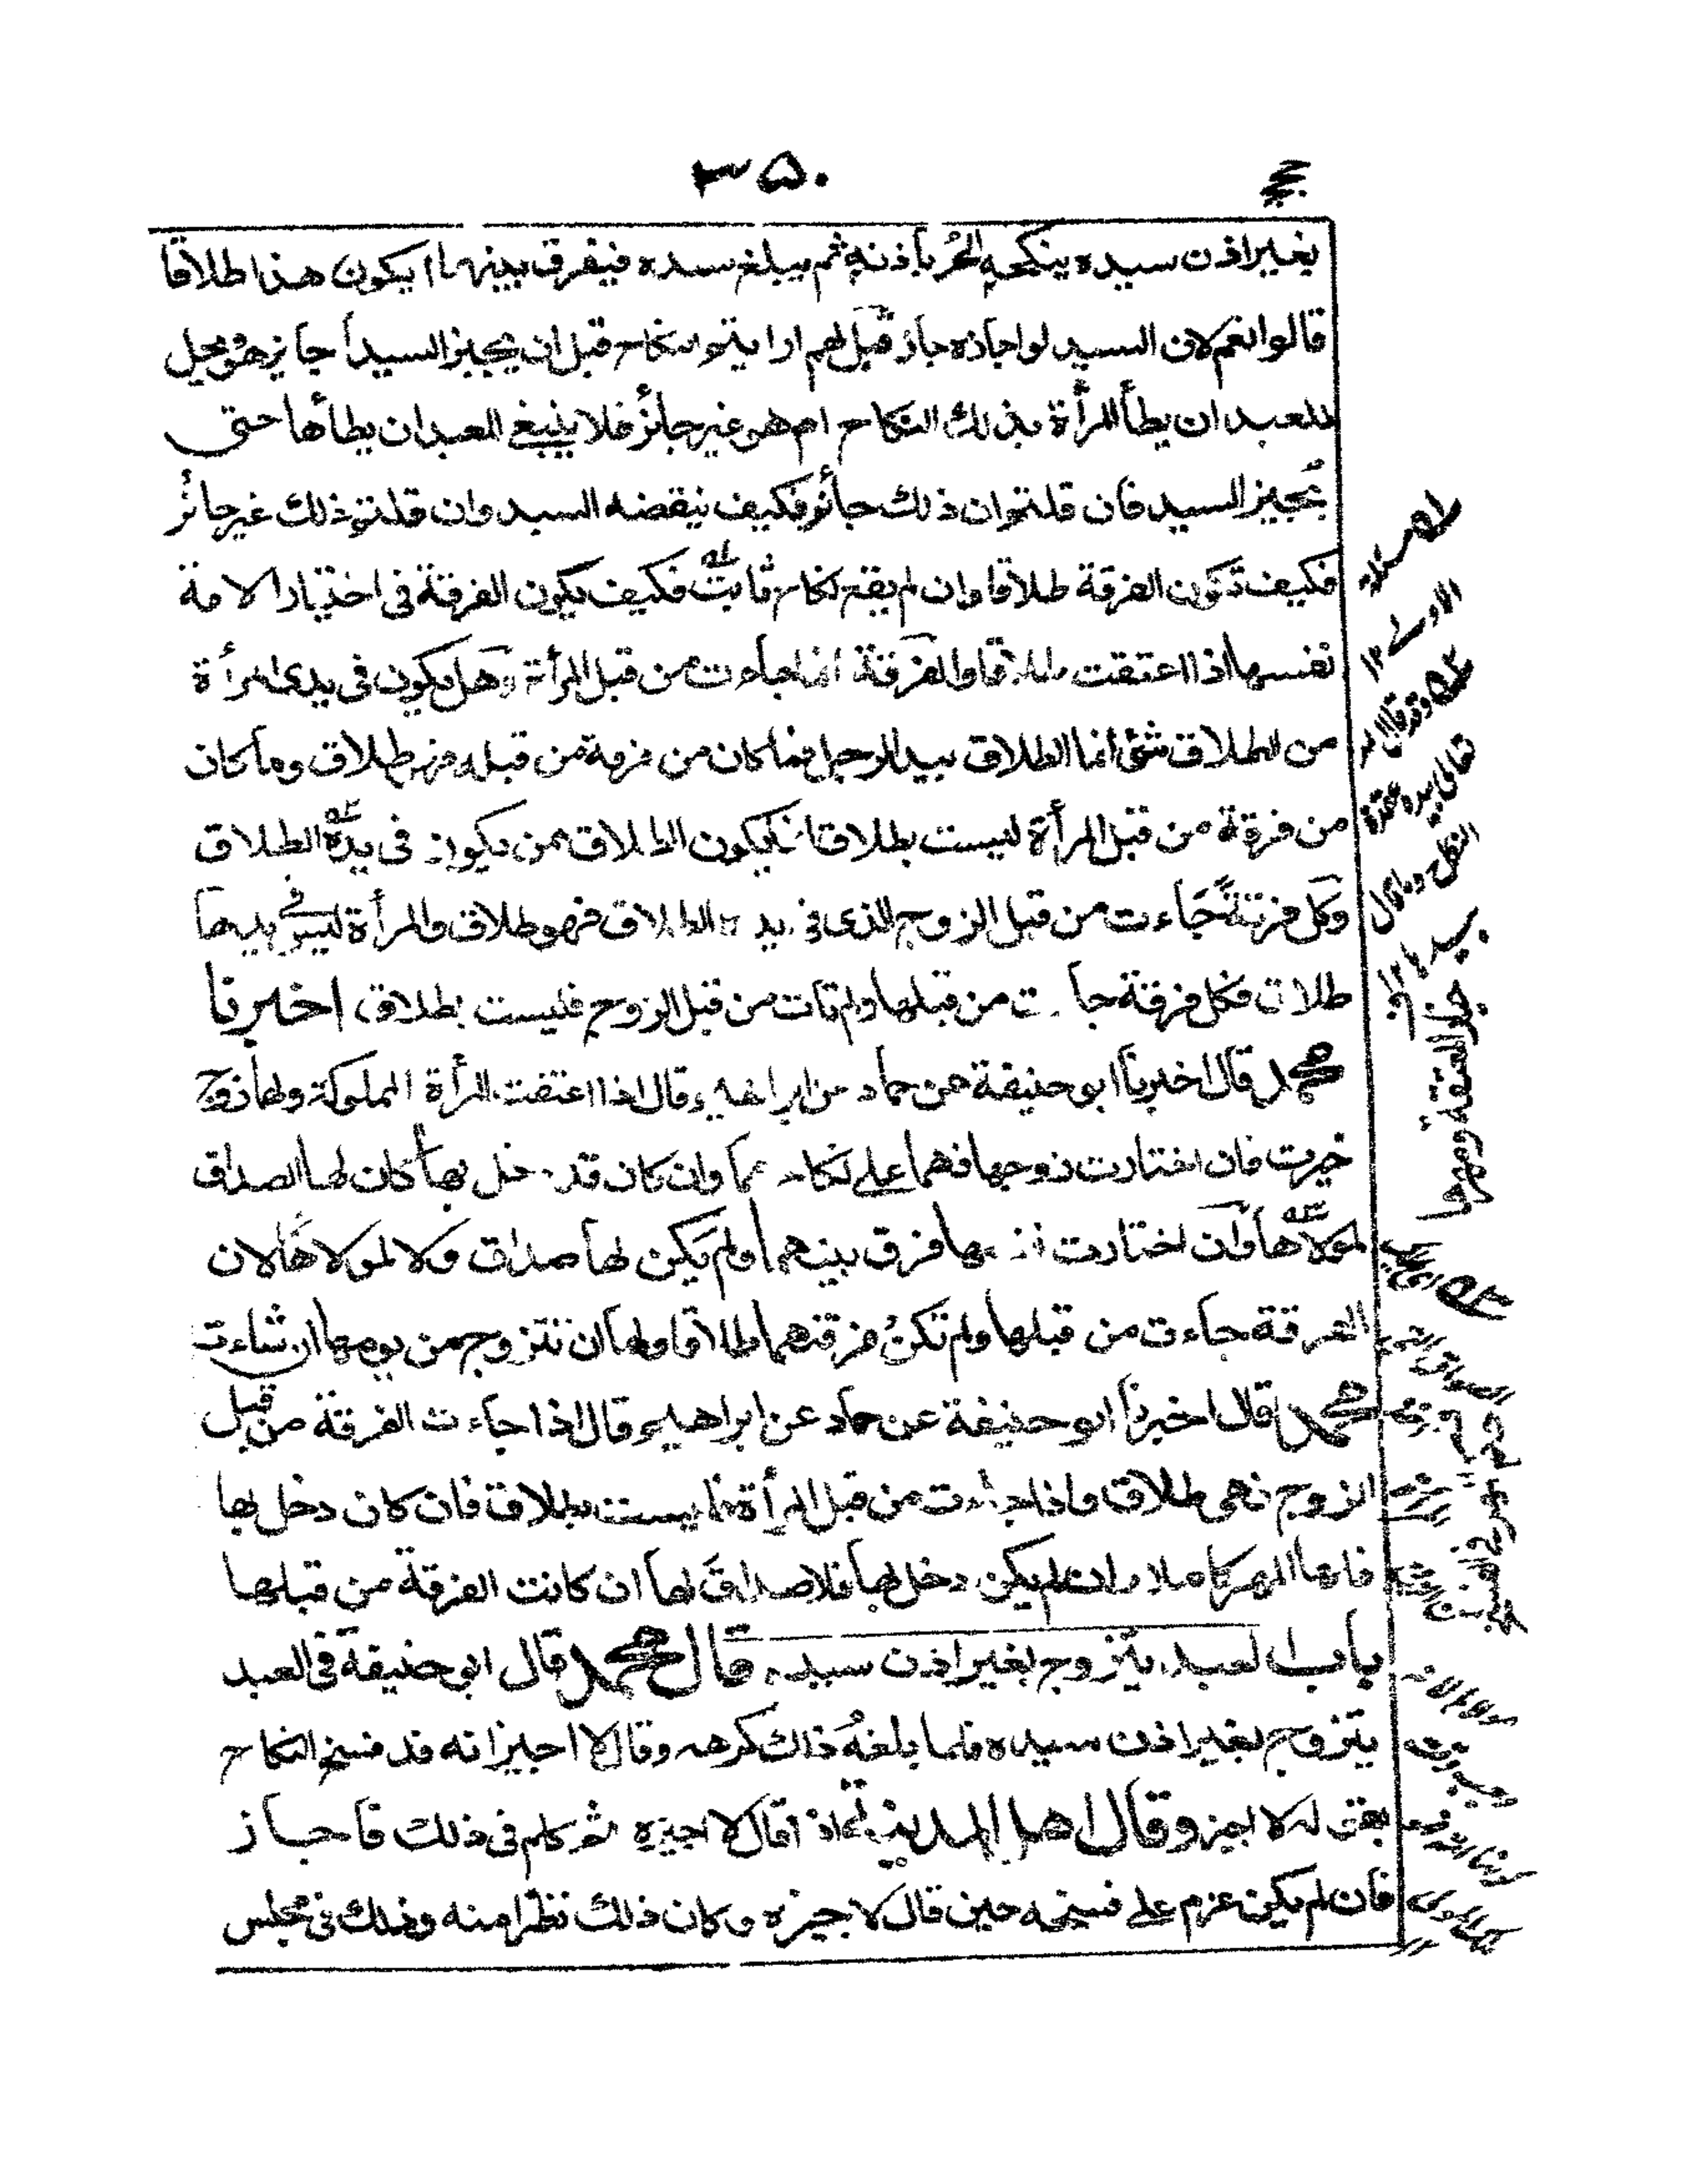 ٣٥٠
بغير اذن سيده ينكحه الحر باذنه ثم يبلغ سيده فيفرق بينهما ايكون هذا طلاقا
قالوا نعم لان السيد لو اجازه جاز قيل لهم ارايتم نكاحه قبل ان يجيز السيد أجايز هو يحل
للعبد ان يطأ المرأة بذلك النكاح ام هو غير جائز فلا ينبغي للعبد ان يطأها حتى
يجيز السيد فان قلتم ان ذلك جائز فكيف ينقضه السيد وان قلتم ذلك غير جائز
فكيف تكون الفرقة طلاقا وان لم يقع نكاح ثابت فكيف يكون الفرقة في اختيار الامة
نفسها اذا اعتقت طلاقا والفرقة انما جاءت من قبل المرأة وهل يكون في يدى امرأة
من الطلاق شئ انما الطلاق بيد الرجل فما كان من فرقة من قبله فهو طلاق وما كان
من فرقة من قبل المرأة ليست بطلاق انما يكون الطلاق ممن يكون في يده الطلاق
وكل فرقة جاءت من قبل الزوج الذى في يده الطلاق فهو طلاق والمرأة ليس في يديها
طلاق فكل فرقة جاءت من قبلها ولم تات من قبل الزوج فليست بطلاق اخبرنا
محمد قال اخبرنا ابو حنيفة عن حماد عن ابراهيم وقال اذا اعتقت المرأة المملوكة ولها زوج
خيرت فان اختارت زوجها فهما على نكاحهما وان كان قد دخل بها كان لها الصداق
لمولاها وان اختارت نفسها فرق بينهما ولم يكن لها صداق ولا لمولاها لان
الفرقة جاءت من قبلها ولم تكن فرقتهما طلاقا ولها ان تتزوج من يومها ان شاءت
محمد قال اخبرنا ابو حنيفة عن حماد عن ابراهيم وقال اذا جاءت الفرقة من قبل
الزوج فهى طلاق واذا جاءت من قبل المرأة فليست بطلاق فان كان دخل بها
فلها المهر كاملا وان لم يكن دخل بها فلا صداق لها ان كانت الفرقة من قبلها
باب العبد يتزوج بغير اذن سيده قال محمد قال ابو حنيفة في العبد
يتزوج بغير اذن سيده فلما بلغه ذلك كرهه وقال لا اجيز انه قد فسخ النكاح
بقوله لا اجيز وقال اهل المدينة اذا قال لا اجيزه ثم كلم في ذلك فاجاز
فان لم يكن عزم على فسخه حين قال لا اجيزه وكان ذلك نظرا منه وذلك في مجلس